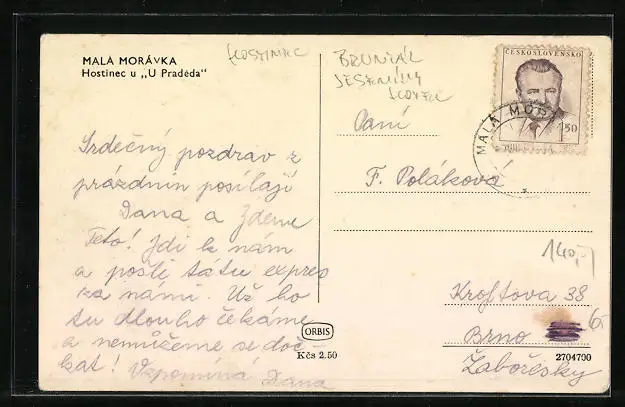 MALÁ MORÁVKA
Hostinec u „U Praděda"
HOSTINEC
BRUNTÁL
JESENÍKY
HOTEL
ČESKOSLOVENSKO
1,50
MALÁ MOR
Srdečný pozdrav z
prázdnin posílají
Dana a Zdena
Teto! Jdi k nám
a pošli tátu expres
za námi. Už ho
tu dlouho čekáme
a nemůžeme se doč
kat! Vzpomíná Dana
Paní
F. Poláková
140,-
Kroftova 38
6
Brno
Žabovřesky
ORBIS
Kčs 2.50
2704700